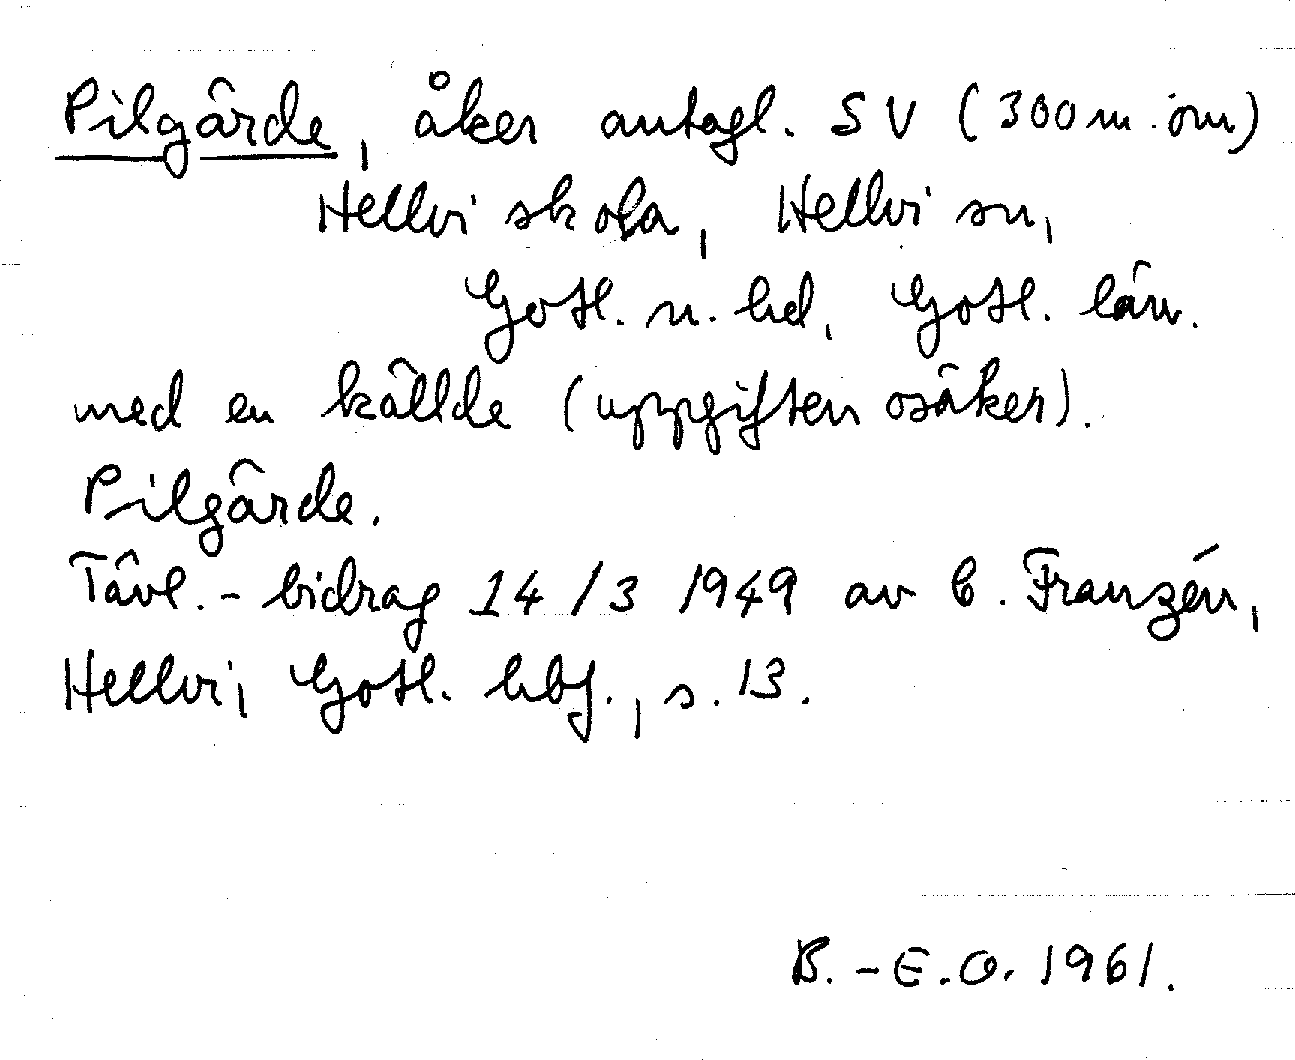 Pilgärde, åker antagl. SV (300 m. om)
Hellvi skola, Hellvi sn,
Gotl. n. hd, Gotl. län.
med en källde (uppgiften osäker).
Pilgärde.
Tävl.-bidrag 14/3 1949 av C. Franzén,
Hellvi, Gotl. hbf., s. 13.
B.-E.O. 1961.